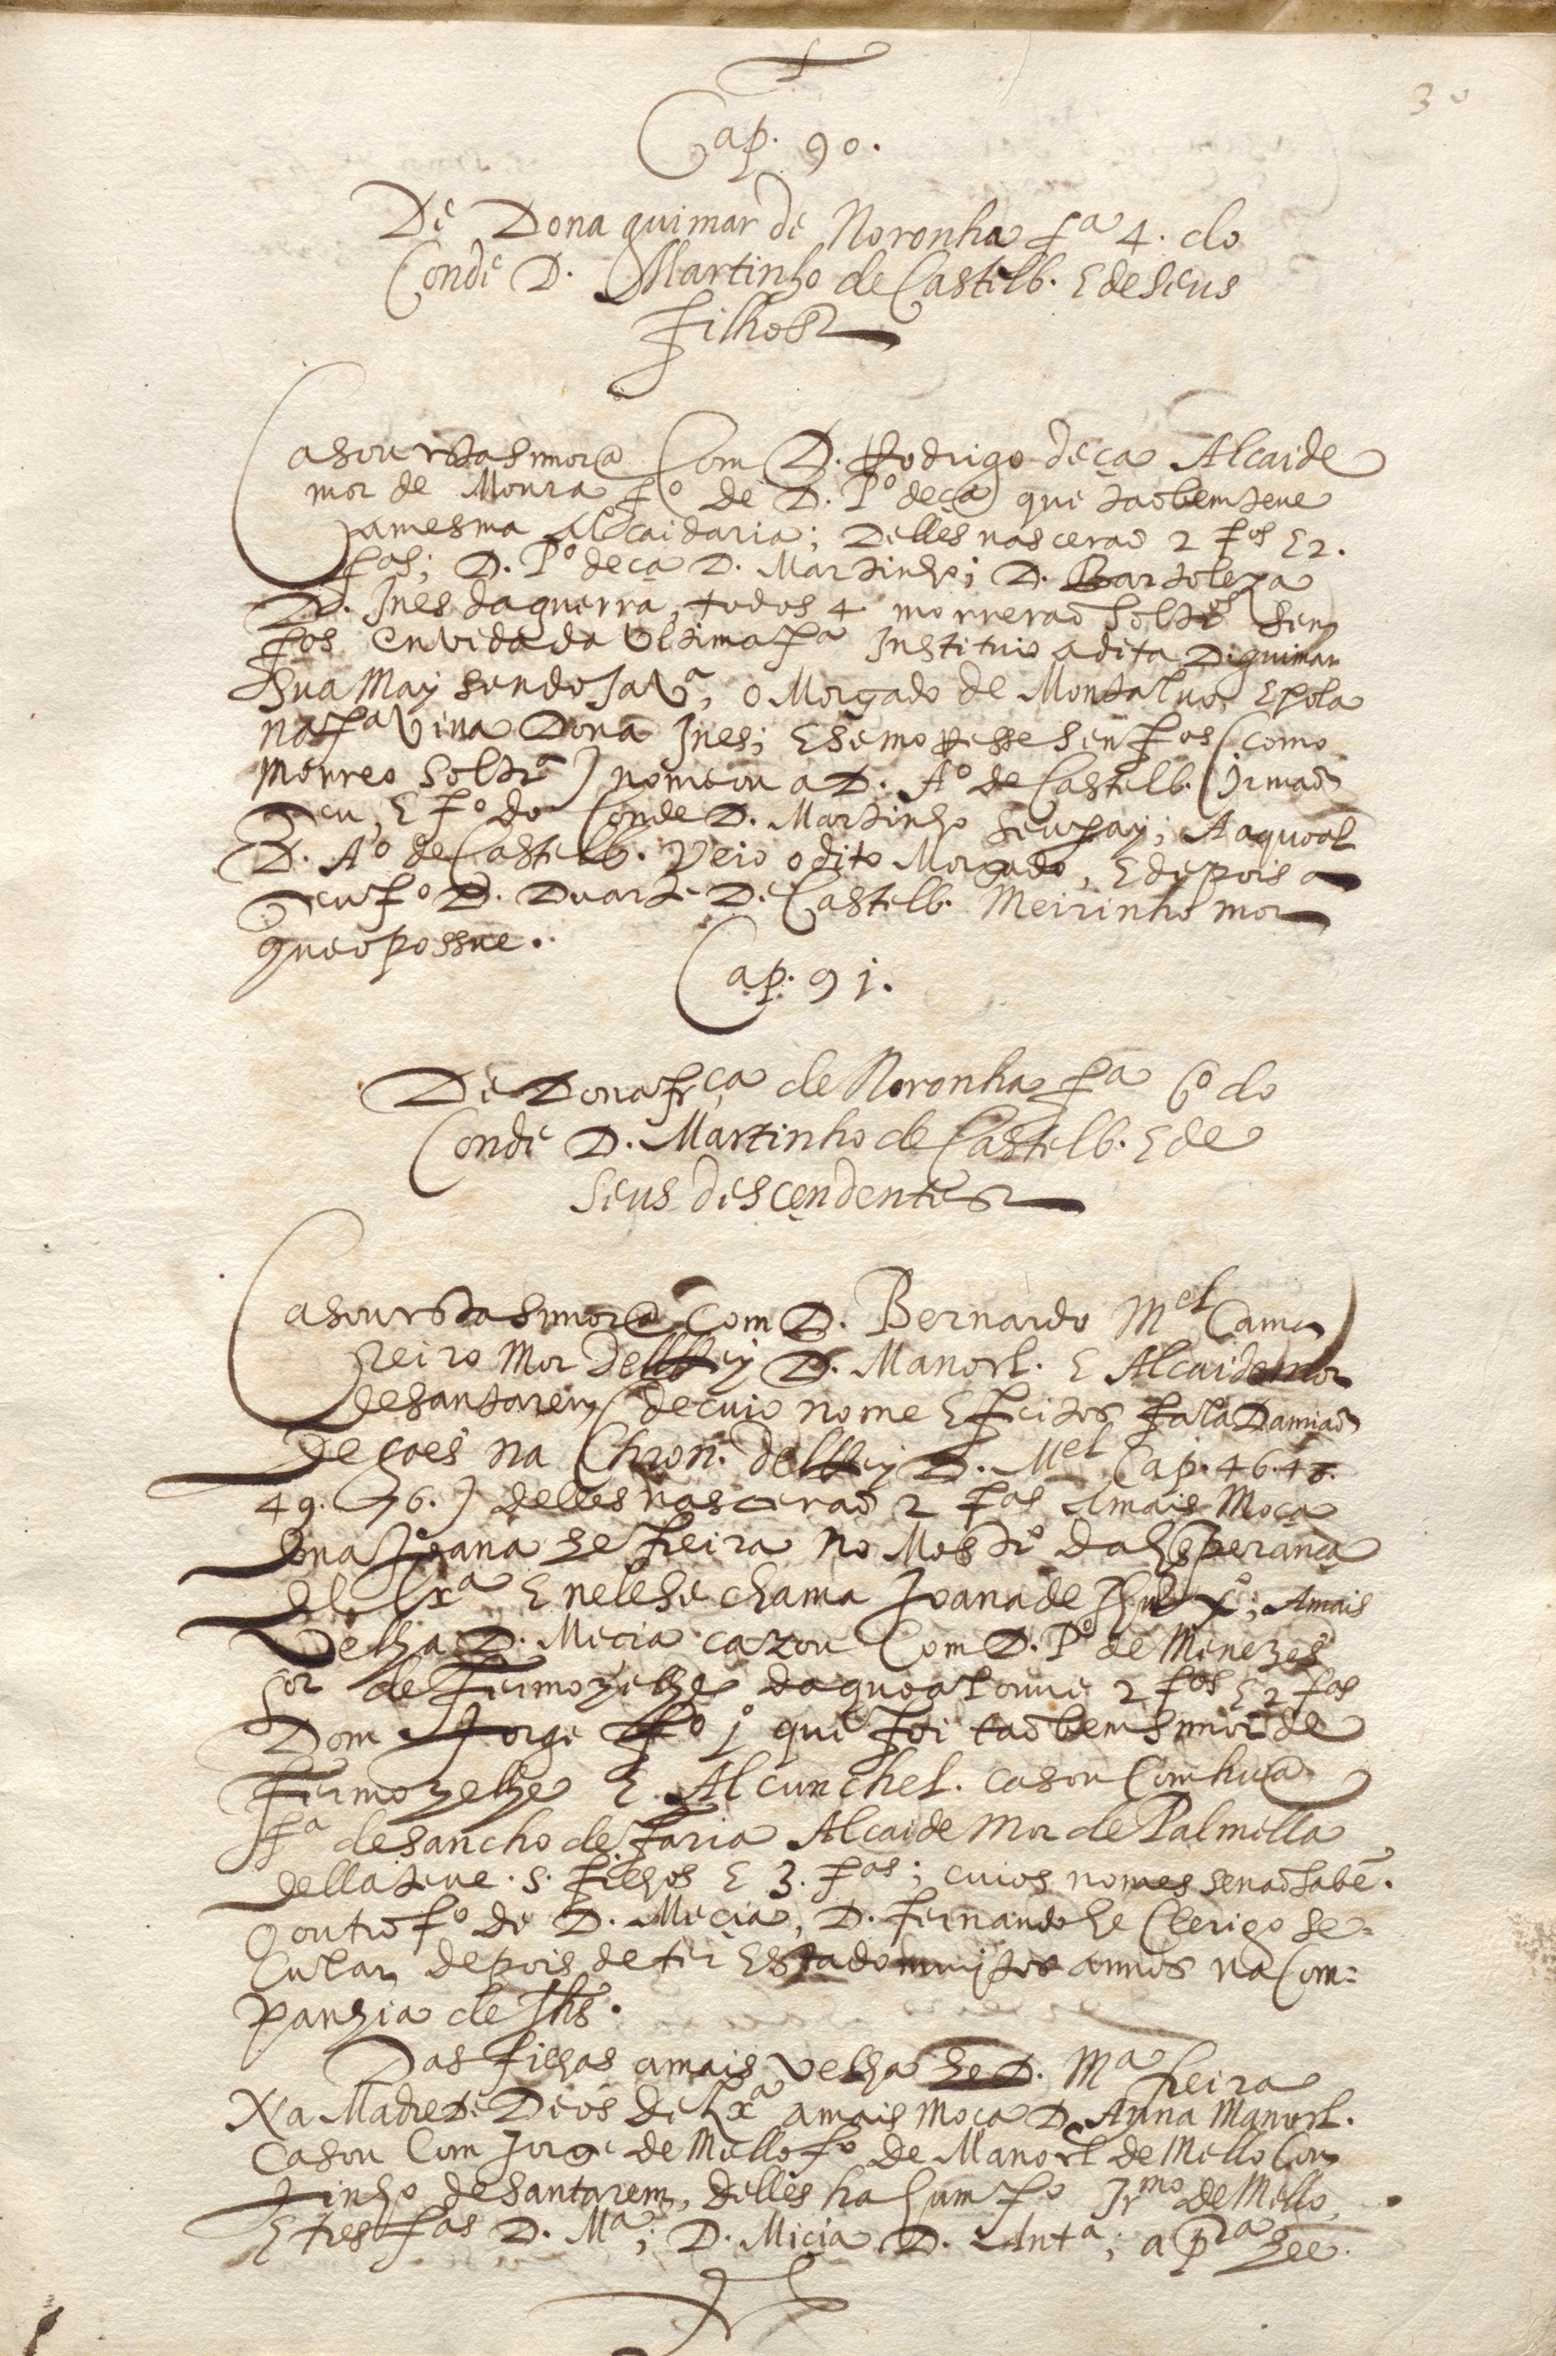 30
Cap. 90.
De Dona guimar de Noronha fª 4. do
Conde D. Martinho de Castelb. E de seus
filhos
Casou esta Snnora Com D. Rodrigo deça Alcaide
mor de Moura fº de D. Pº deça que taõbem teue
a mesma Alcaidaria; Delles nasceraõ 2 fos E 2.
fas; D. Pº deça D. Martinho; D. Bartoleza
D. Ines da guerra, todos 4 morrerão soltrºs sem
fos En vida da Vltima fª Instituio a dita D. guimar
Sua May sendo Ja Vª, o Morgado de Montaluo, E pola
na fª Viua Dona Ines; E se morresse sen fos (como
morreo soltrª) nomeou a D. Aº de Castelb. (Irmaõ
Seu, E fº do Conde D. Martinho seu pay; A a quoal
D. Aº de Castelb. Veio o dito Morgado, E depois a
Seu fº D. Duarte D. Castelb. Meirinho mor
que o possue.
Cap. 91.
De Dona frça de Noronha fª 6º do
Conde D. Martinho de Castelb. E de
seus descendentes
Casou esta Snnora Com D. Bernardo Mel Came
reiro Mor delRey D. Manoel. E Alcaide mor
de santarem (de cuio nome E feitos fala Damiaõ
De goes na Chron. delRey D. Mel Cap. 46. 48.
49. 76.) delles nascerão 2 fas A mais Moça
Dona Joana he freira no Mostrº da Esperança
de Lxª E nele se chama Joana de Jhu Xº; A mais
Velha D. Mecia cazou Com D. Pº de Menezes
sor de Fermozelhe da quoal ouue 2 fos E 2 fas
Dom Jorge fº 1º que foi taõbem snnor de
Fermozelhe E Alcunchel. casou Com hua
fª de sancho de Faria Alcaide Mor de Palmella
della teue .5. filhos E 3. fas; cuios nomes se naõ sabẽ.
O outro fº de D. Mecia, D. Fernando he Clerigo se=
Cular, depois de ter Estado muitos annos na Com=
panhia de Jhs.
Das filhas a mais Velha he D. Mª freira
Na Madre De Deos de Lxª a mais moça D. Anna Manoel.
Casou Com Jorge de Mello fº de Manoel de Mello Cou
tinho de santarem, delles ha hum fº Jrmo de Mello
E tres fas D. Mª; D. Micia D. Antª; a prª hee